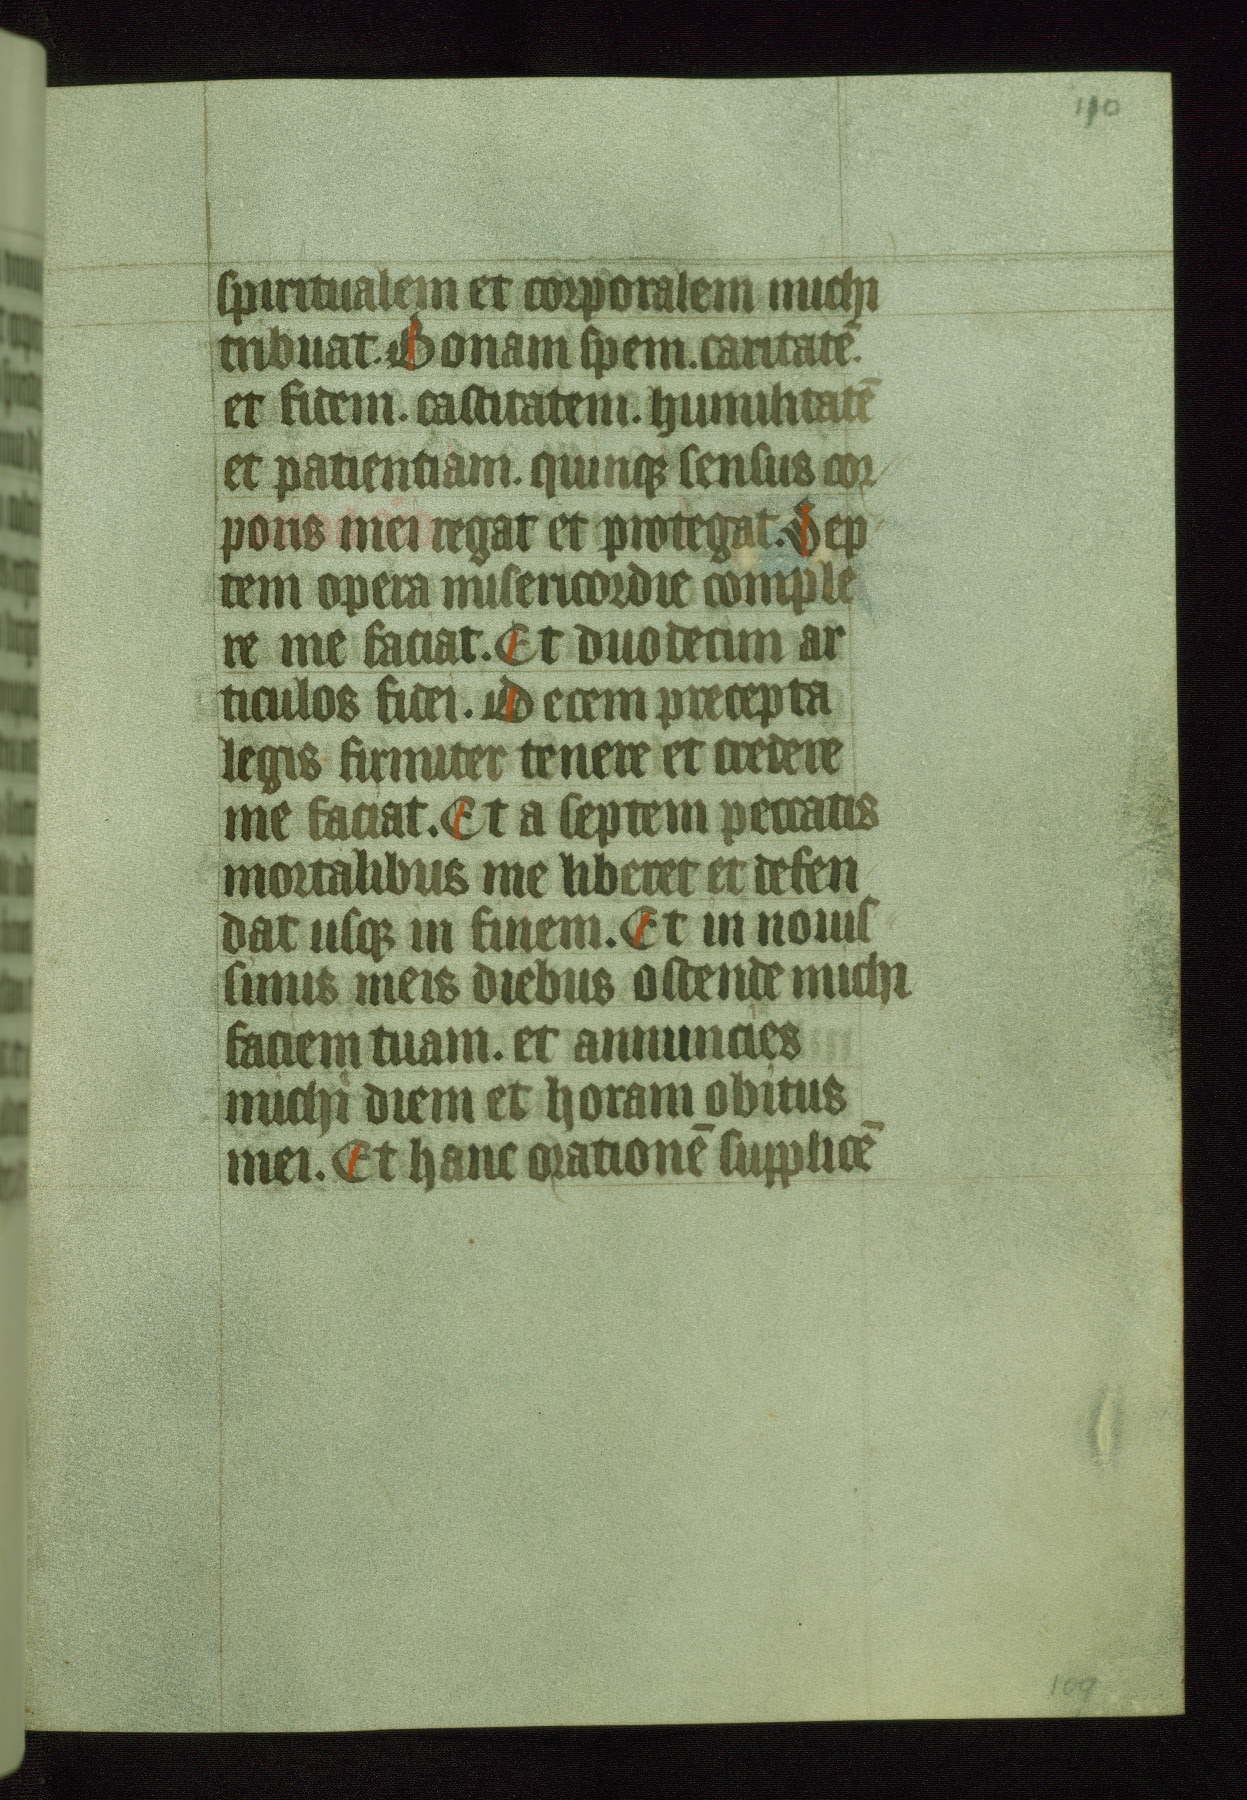 110
spiritualem et corporalem michi
tribuat. Bonam spem. caritatē.
et fidem. castitatem. humilitatē
et patientiam. quinqꝫ sensus cor
poris mei regat et protegat. Sep
tem opera misericordie comple
re me faciat. Et duodecim ar
ticulos fidei. Decem precepta
legis firmiter tenere et credere
me faciat. Et a septem peccatis
mortalibus me liberet et defen
dat usqꝫ in finem. Et in nouis
simis meis diebus ostende michi
faciem tuam. et annuncies
michi diem et horam obitus
mei. Et hanc orationē supplicē
109